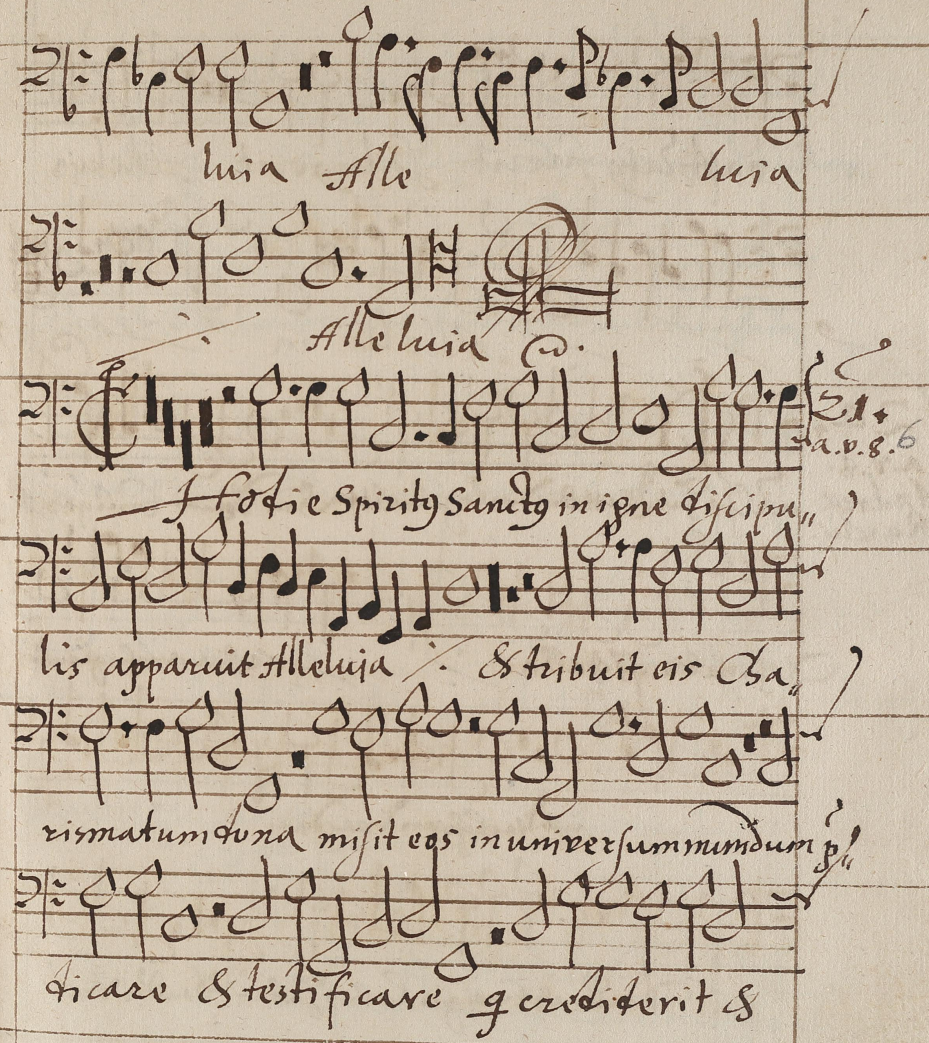 luia Alle luia
Alleluia
21.
a.v.8. 6
Hodie Spiritꝯ Sanctꝯ in igne discipu„
lis apparuit Alleluia ·/· & tribuit eis Cha„
rismatum dona misit eos in universum mundum p̄„
dicare & testificare q̄ crediderit &